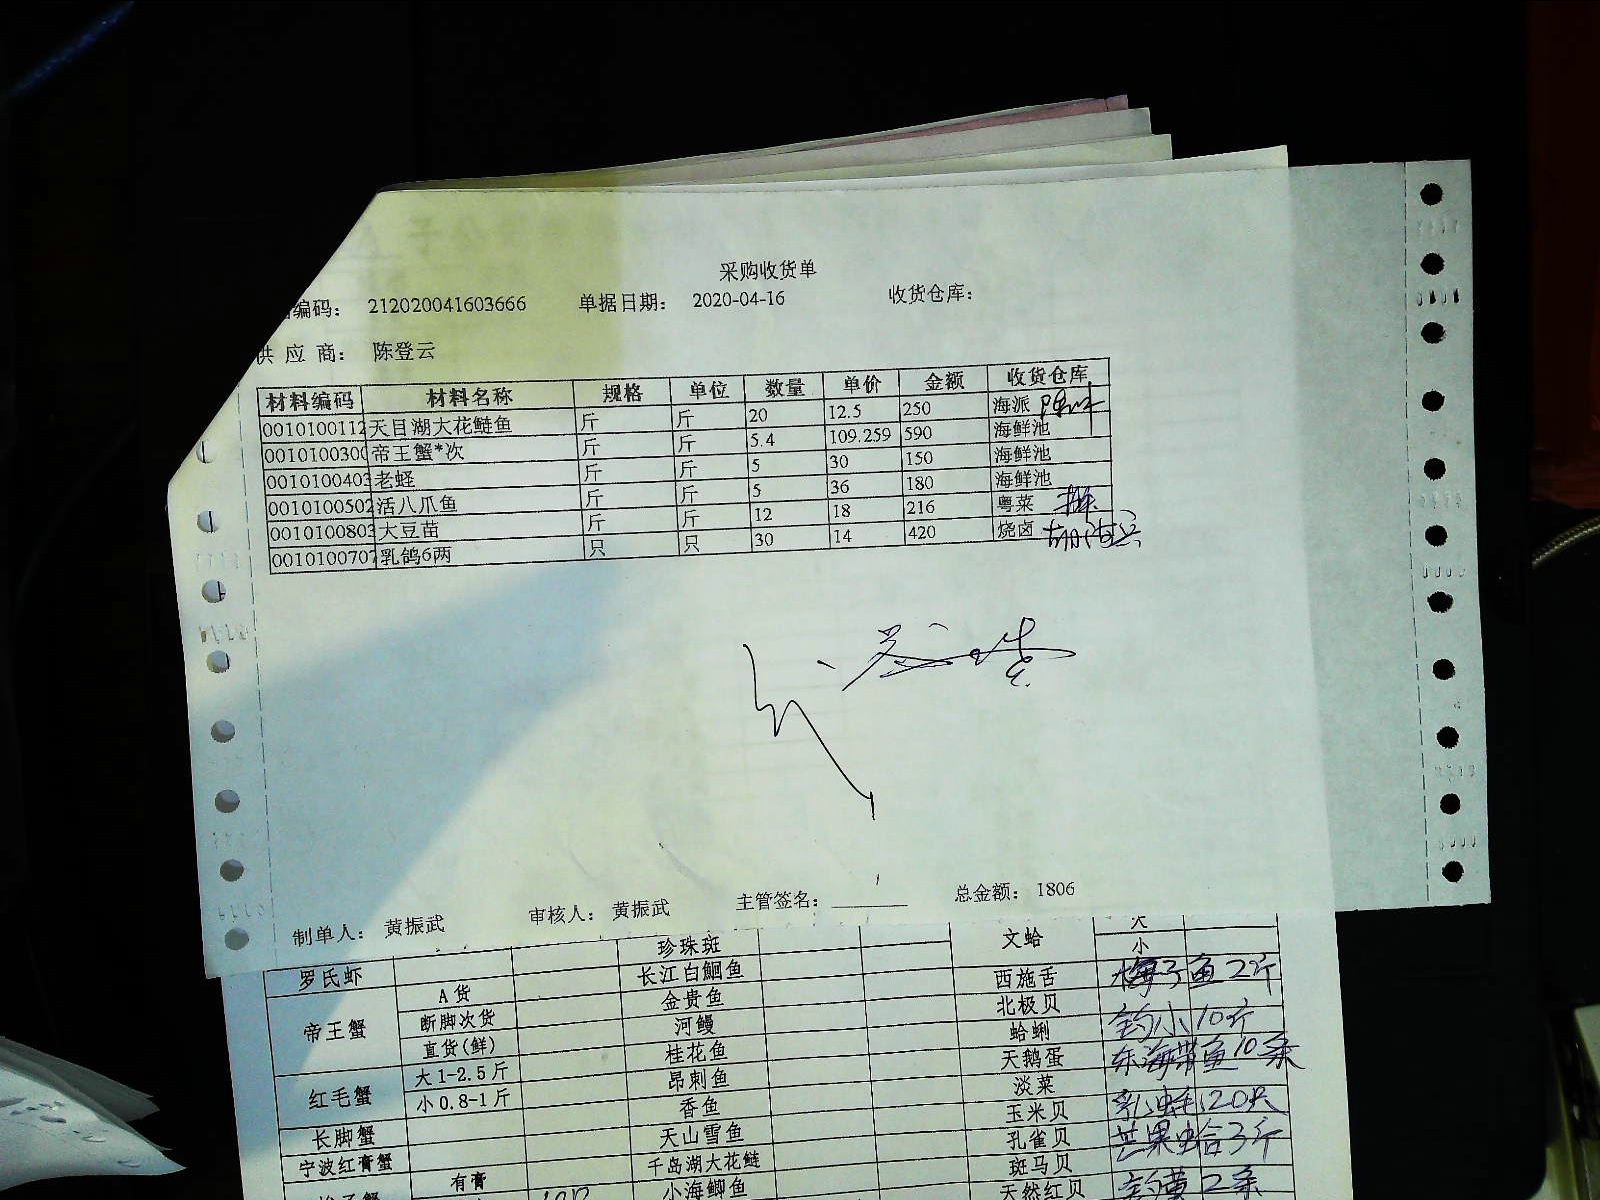 采购收货单
编码： 212020041603666 单据日期： 2020-04-16 收货仓库：
供 应 商： 陈登云
材料编码 材料名称 规格 单位 数量 单价 金额 收货仓库
0010100112 天目湖大花鲢鱼 斤 斤 20 12.5 250 海派
001010030 帝王蟹*次 斤 斤 5.4 109.259 590 海鲜池
001010040 老蛏 斤 斤 5 30 150 海鲜池
001010050 活八爪鱼 斤 斤 5 36 180 海鲜池
001010080 大豆苗 斤 斤 12 18 216 粤菜
001010070 乳鸽6两 只 只 30 14 420 烧卤
制单人： 黄振武 审核人： 黄振武 主管签名： 总金额： 1806
珍珠斑 文蛤 大
小
罗氏虾 长江白鮰鱼 西施舌 梅子鱼2斤
帝王蟹 A货 金贵鱼 北极贝
断脚次货 河鳗 蛤蜊 10斤
直货(鲜) 桂花鱼 天鹅蛋 东海带鱼10条
红毛蟹 大1-2.5斤 昂刺鱼 淡菜
小0.8-1斤 香鱼 玉米贝 120只
长脚蟹 天山雪鱼 孔雀贝 芒果蛤3斤
宁波红膏蟹 千岛湖大花鲢 斑马贝
有膏 小海鲫鱼 天然红贝 2条